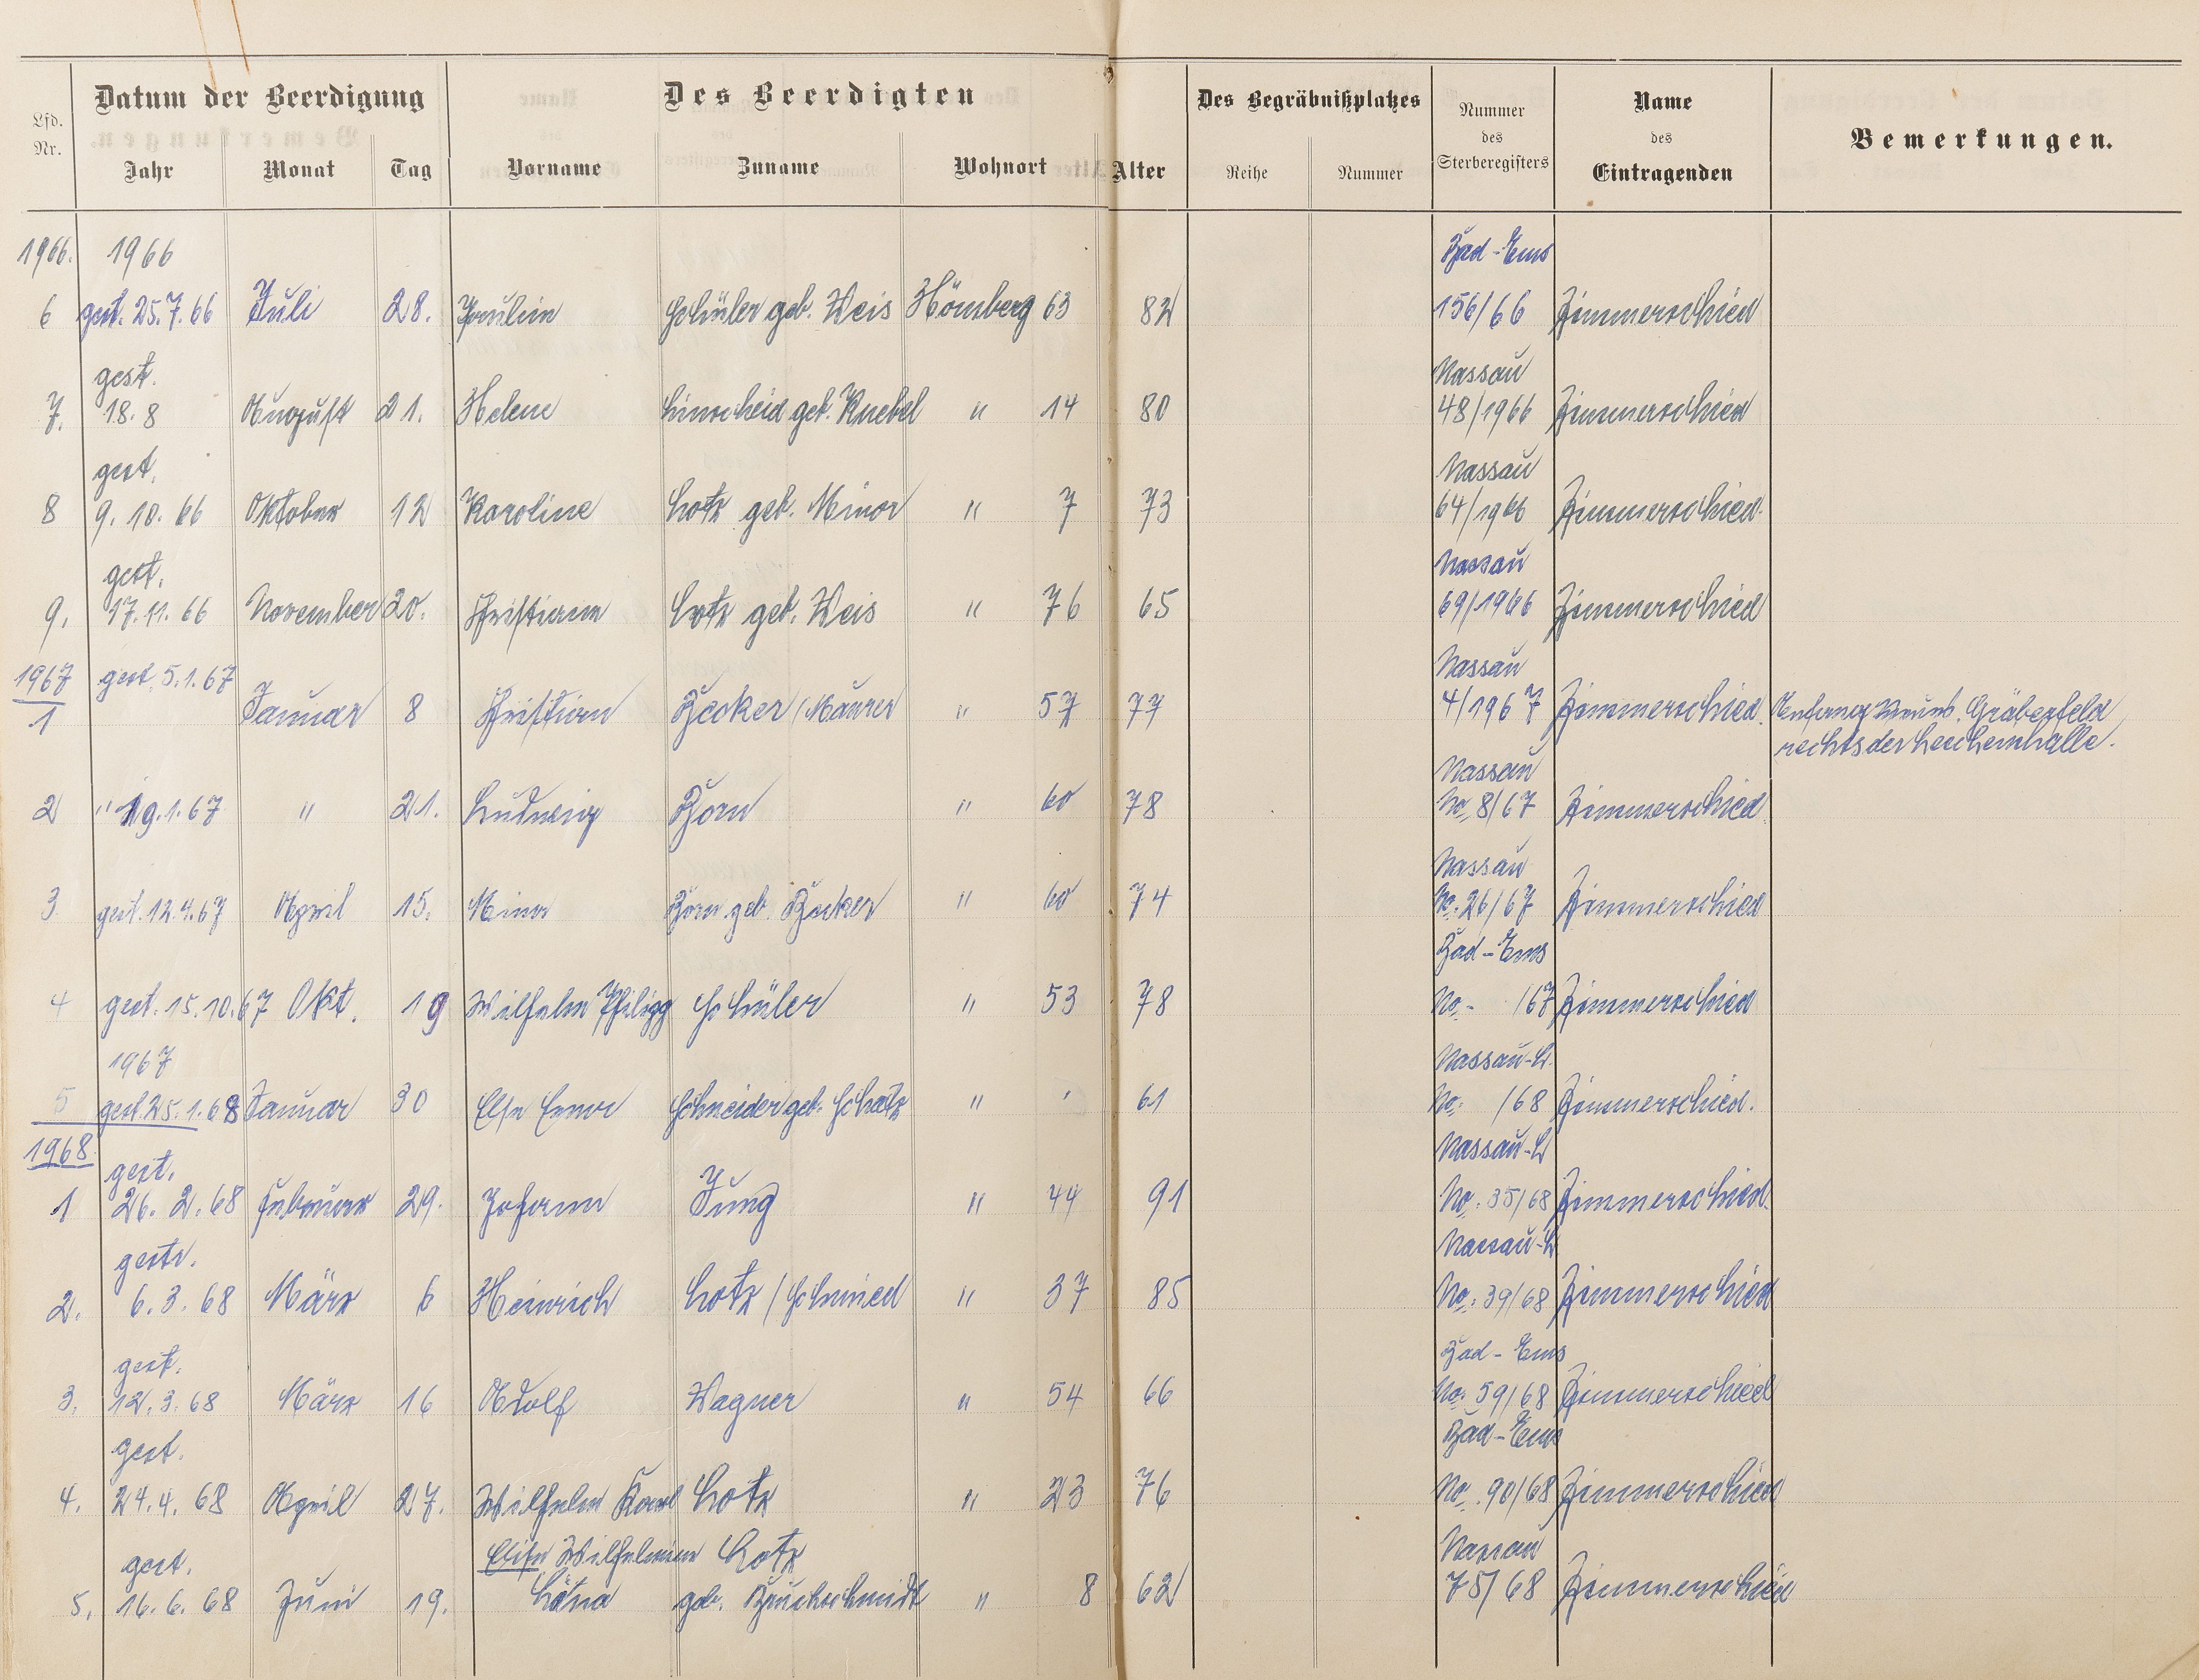 Lfd. Nr. Datum der Beerdigung Des Beerdigten Des Begräbnißplatzes Nummer des Sterberegisters Name des Eintragenden Bemerkungen.
Jahr Monat Tag Vorname Zuname Wohnort Alter Reihe Nummer
1966. 1966 Bad-Ems
6 gest. 25.7.66 Juli 28. Paulin Schüler geb. Weis Hömberg 63 82 156/66 Zimmerschied
gest. Nassau
7. 18.8 August 21. Helene Linscheid geb. Knebel " 14 80 48/1966 Zimmerschied
gest. Nassau
8 9.10.66 Oktober 12 Karoline Lotz geb. Minor " 7 73 64/1966 Zimmerschied.
gest. Nassau
9. 17.11.66 November 20. Christiane Lotz geb. Weis " 76 65 69/1966 Zimmerschied
1967 gest. 5.1.67 Nassau
1 Januar 8 Christian Becker /Maurer " 57 77 4/1967 Zimmerschied. Anfang Gräberfeld
rechts der Leichenhalle.
Nassau
2 " 19.1.67 " 21. Ludwig Born " 60 78 No. 8/67 Zimmerschied.
Nassau
3 gest. 12.4.67 April 15. Mina Born geb. Becker " 60 74 No. 26/67 Zimmerschied
Bad-Ems
4 gest. 15.10.67 Okt. 19 Wilhelm Philipp Schüler " 53 78 No. - /67 Zimmerschied
1967 Nassau-L.
5 gest. 25.1.68 Januar 30 Else Schneider geb. Schatz " 61 No. /68 Zimmerschied.
1968. gest. Nassau-L
1 26.2.68 Februar 29. Johann Jung " 44 91 No. 35/68 Zimmerschied.
gest. Nassau-L
2. 6.3.68 März 6 Heinrich Lotz /Schmied " 37 85 No. 39/68 Zimmerschied
gest. Bad-Ems
3. 12.3.68 März 16 Adolf Wagner " 54 66 No. 59/68 Zimmerschied
gest. Bad-Ems
4. 24.4.68 April 27. Wilhelm Karl Lotz " 23 76 No. 90/68 Zimmerschied
gest. Elise Wilhelmine Lotz Nassau
5. 16.6.68 Juni 19. geb. Bruchschmidt " 8 62 75/68 Zimmerschied